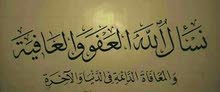 نسأل الله العفو والعافية
والمعافاة الدائمة في الدنيا والآخرة